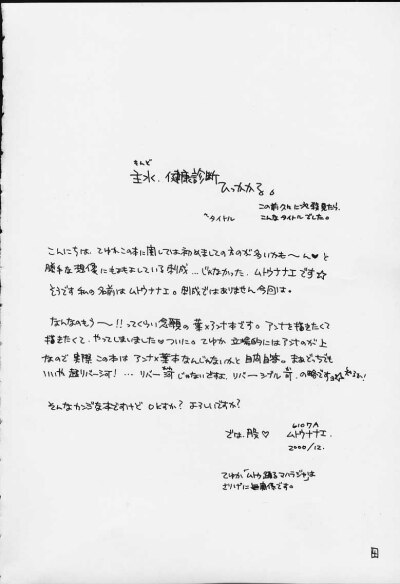 もんど
主水、健康診断
ひっかかる。
この前久々に必殺見たら、
こんなタイトルでした。
^タイトル
こんにちは、てゆかこの本に関しては初めましての方が多いかも〜ん♥と
勝手な想像に
している刹成…じゃなかった、ムトウナナエです☆
そうです私の名前はムトウナナエ。刹成ではありません今回は。
なんなのもう〜!!ってくらい念願の葉×アンナ本です。アンナを描きたくて
描きたくて、やってしまいました♡ついに。てゆか立場的にはアンナのが上
なので実際この本はアンナ×葉本なんじゃないかと自問自答。まぁどっちでも
いいや超リバーシ可!…リバーシ可じゃないですよ、リバーシブル可の略ですよ
そんなカンジな本ですけどOKですか?よろしいですか?
では、股♡
6107A
ムトウナナエ
2000/12.
てゆか「ムトウ踊るマハラジャ」は
さりげに無関係です。